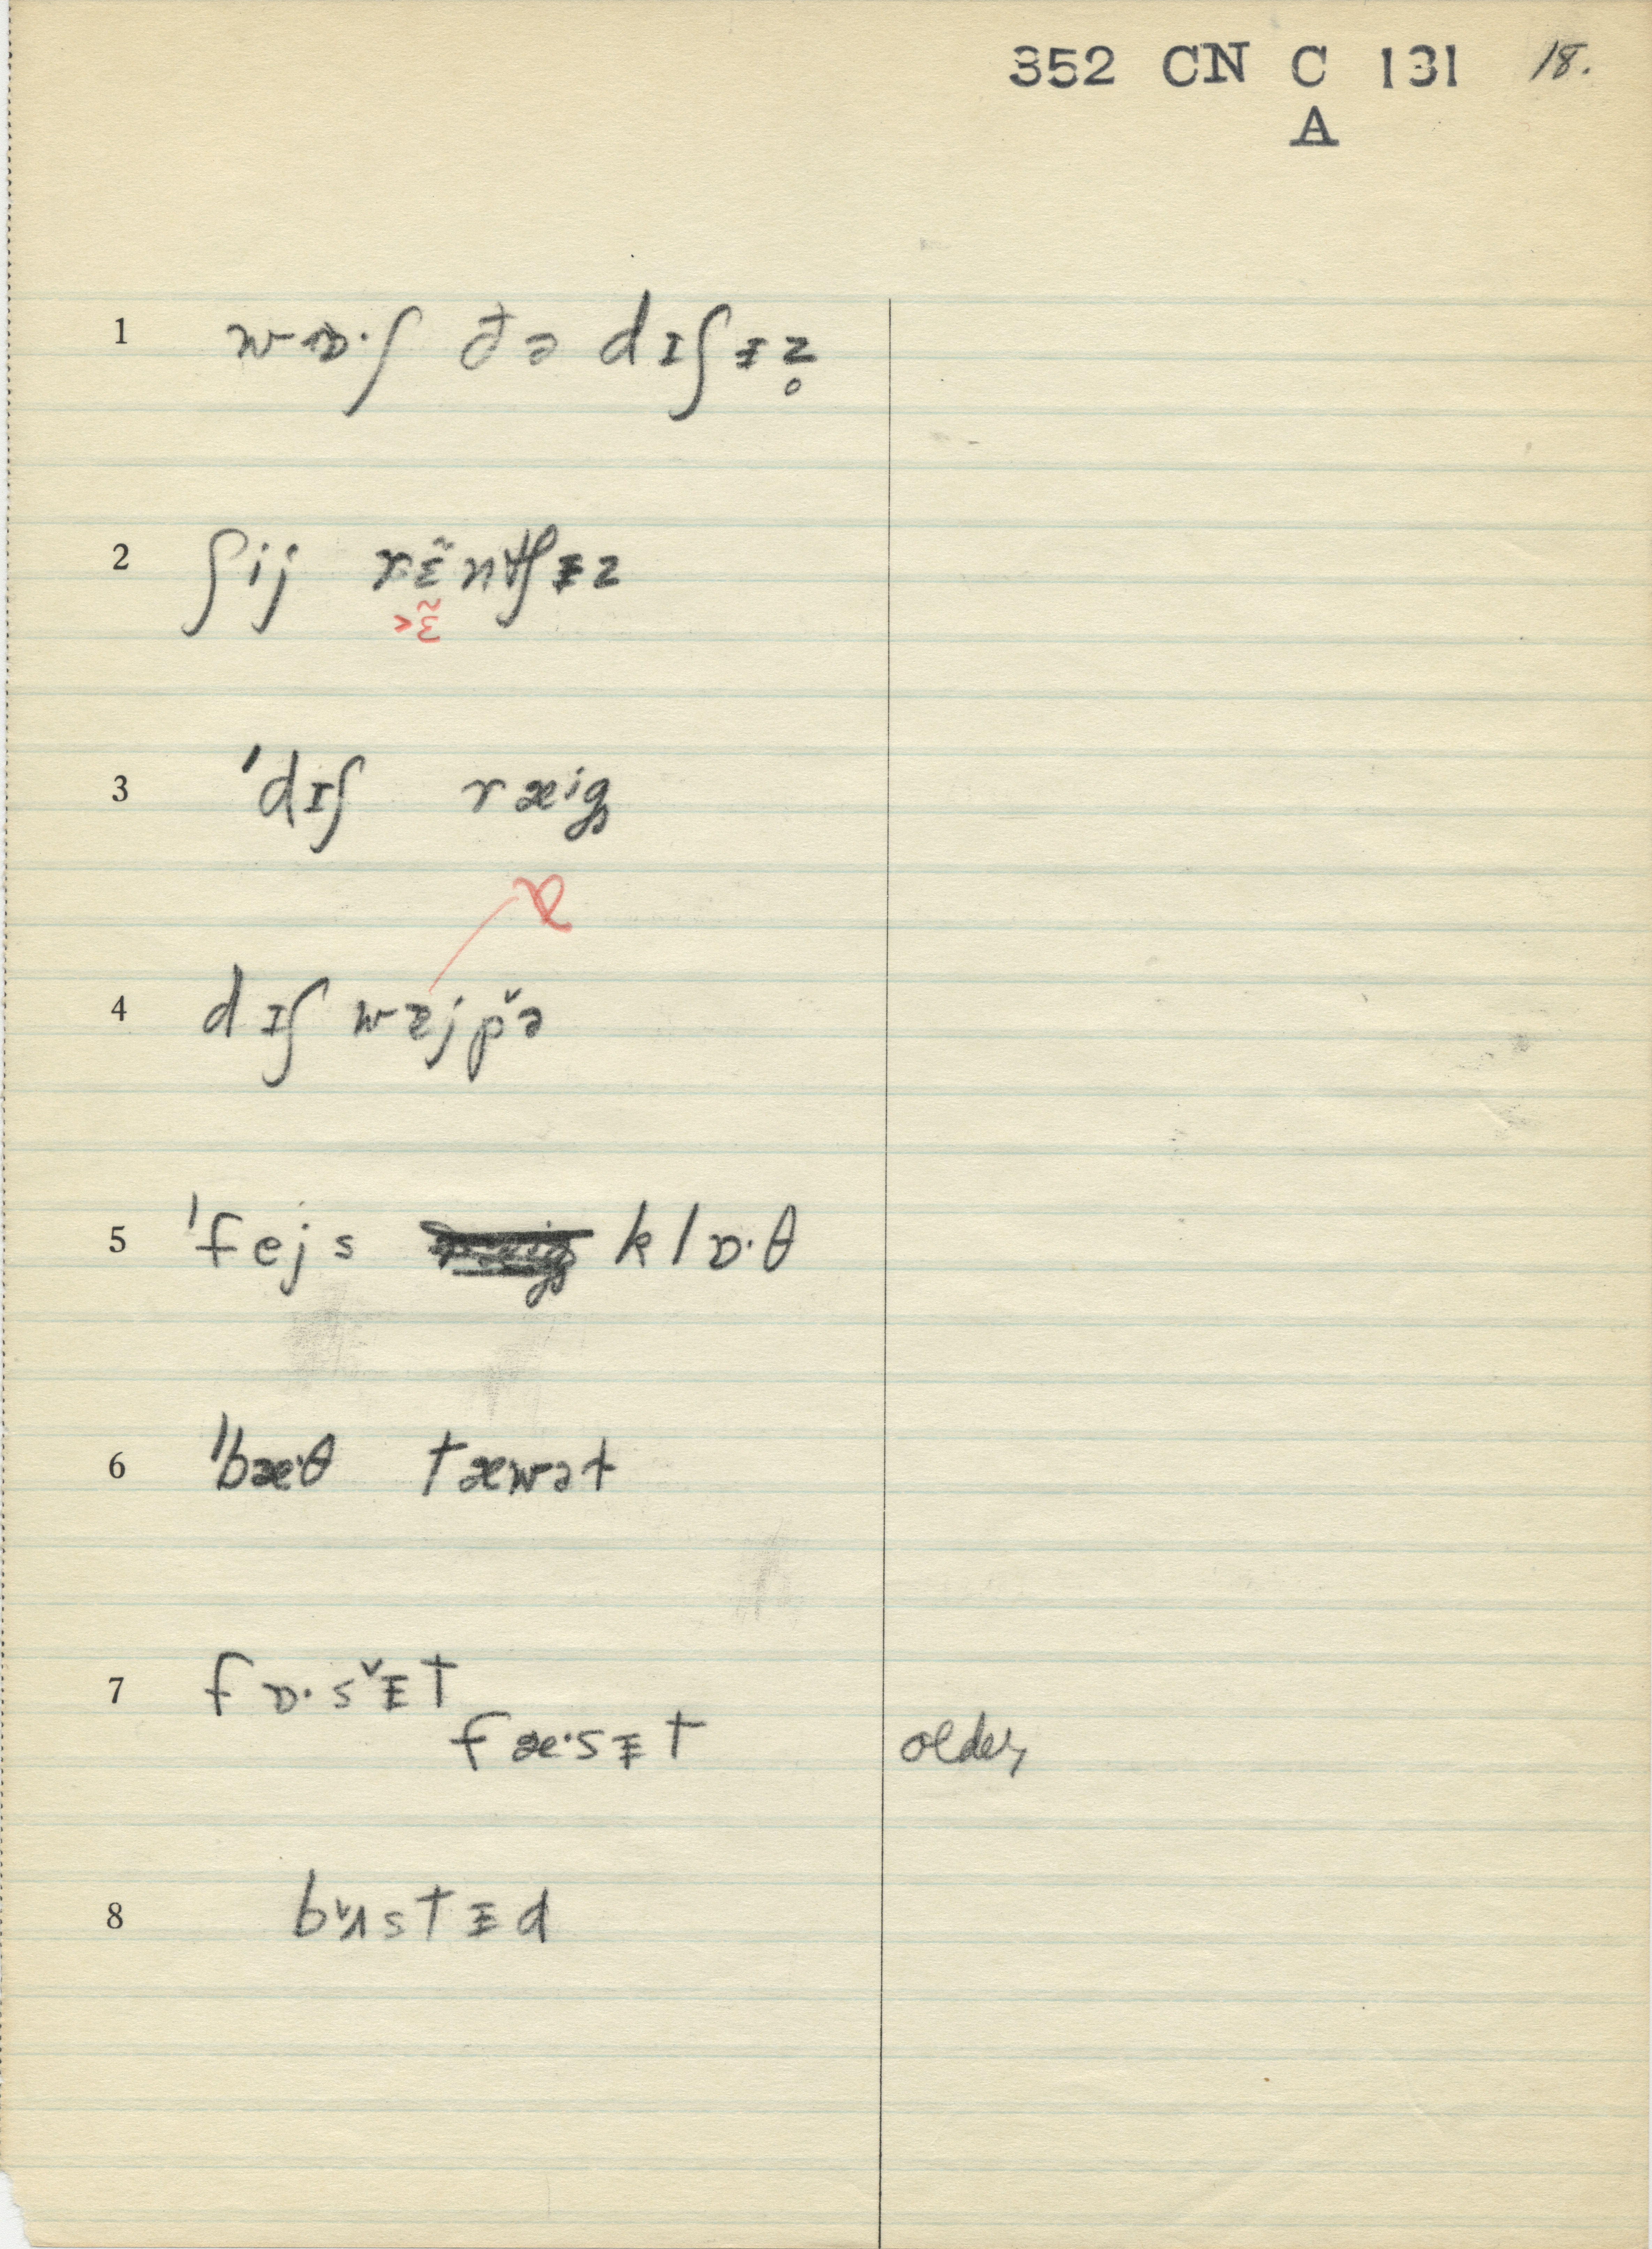 352 CN C 131 18.
A
1 wɒ·ʃ ðə dɪʃɪ̵z̥
2 ʃij rɛ̃ntʃɪ̵z
>ɛ̃
3 ˈdɪʃ ræig̥
4 dɪʃ wɐjpˇə
5 ˈfejs klɒ·θ
6 ˈbæ·θ tæwət
7 fɒ·sˇɪ̵t
fæ·sɪ̵t older
8 bˇʌstɪ̵d